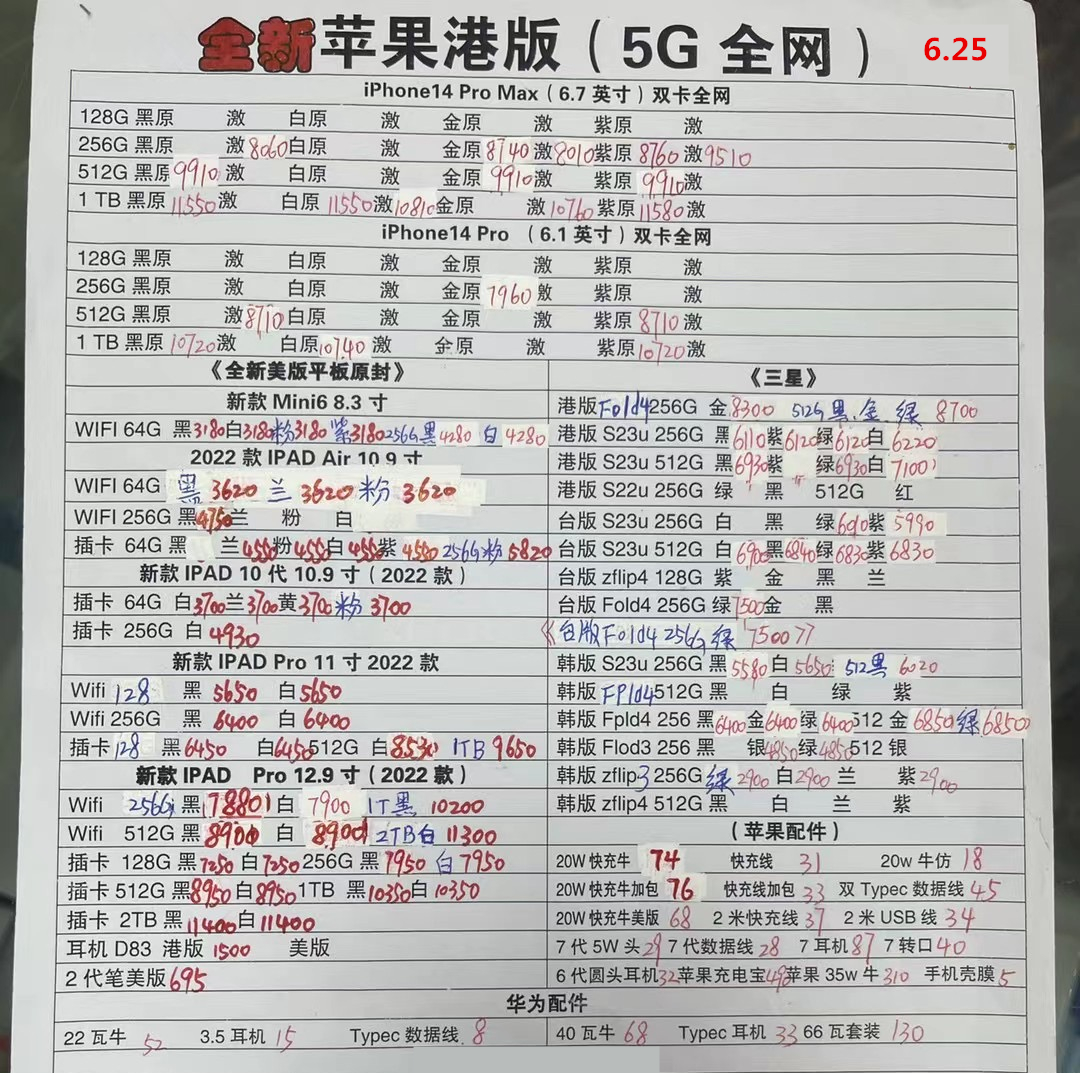 全新苹果港版（5G 全网） 6.25
iPhone14 Pro Max（6.7 英寸）双卡全网
128G 黑原 激 白原 激 金原 激 紫原 激
256G 黑原 激 8060 白原 激 金原 8740 激 8010 紫原 8760 激 9510
512G 黑原 9910 激 白原 激 金原 9910 激 紫原 9910 激
1 TB 黑原 11550 激 白原 11550 激 10810 金原 激 10760 紫原 11580 激
iPhone14 Pro （6.1 英寸）双卡全网
128G 黑原 激 白原 激 金原 激 紫原 激
256G 黑原 激 白原 激 金原 7960 激 紫原 激
512G 黑原 激 8710 白原 激 金原 激 紫原 8710 激
1 TB 黑原 10720 激 白原 10740 激 金原 激 紫原 10720 激
《全新美版平板原封》
新款 Mini6 8.3 寸
WIFI 64G 黑 3180 白 3180 粉 3180 紫 3180 256G 黑 4280 白 4280
2022 款 IPAD Air 10.9 寸
WIFI 64G 黑 3620 兰 3620 粉 3620
WIFI 256G 黑 4750 兰 粉 白
插卡 64G 黑 兰 4550 粉 4550 白 4550 紫 4550 256G 粉 5820
新款 IPAD 10 代 10.9 寸（2022 款）
插卡 64G 白 3700 兰 3700 黄 3700 粉 3700
插卡 256G 白 4930
新款 IPAD Pro 11 寸 2022 款
Wifi 128 黑 5650 白 5650
Wifi 256G 黑 6400 白 6400
插卡 128 黑 6450 白 6450 512G 白 8530 1TB 9650
新款 IPAD Pro 12.9 寸（2022 款）
Wifi 256G 黑 7880 白 7900 1T 黑 10200
Wifi 512G 黑 8900 白 8900 2TB 白 11300
插卡 128G 黑 7250 白 7250 256G 黑 7950 白 7950
插卡 512G 黑 8950 白 8950 1TB 黑 10350 白 10350
插卡 2TB 黑 11400 白 11400
耳机 D83 港版 1500 美版
2 代笔美版 695
《三星》
港版 Fold4 256G 金 8300 512G 黑.金.绿 8700
港版 S23u 256G 黑 6110 紫 6120 绿 6120 白 6220
港版 S23u 512G 黑 6930 紫 绿 6930 白 7100
港版 S22u 256G 绿 黑 512G 红
台版 S23u 256G 白 黑 绿 紫 5990
台版 S23u 512G 白 6900 黑 6840 绿 6830 紫 6830
台版 zflip4 128G 紫 金 黑 兰
台版 Fold4 256G 绿 7500 金 黑
《台版 Fold4 256G 绿 7500》
韩版 S23u 256G 黑 5580 白 5650 512 黑 6020
韩版 FPld4 512G 黑 白 绿 紫
韩版 Fpld4 256 黑 6400 金 6400 绿 6400 512 金 6850 绿 6850
韩版 Flod3 256 黑 银 4850 绿 4850 512 银
韩版 zflip3 256G 绿 2900 白 2900 兰 紫 2900
韩版 zflip4 512G 黑 白 兰 紫
（苹果配件）
20W 快充牛 74 快充线 31 20w 牛仿 18
20W 快充牛加包 76 快充线加包 33 双 Typec 数据线 45
20W 快充牛美版 68 2 米快充线 37 2 米 USB 线 34
7 代 5W 头 29 7 代数据线 28 7 耳机 87 7 转口 40
6 代圆头耳机 32 苹果充电宝 49 苹果 35w 牛 310 手机壳膜 5
华为配件
22 瓦牛 52 3.5 耳机 15 Typec 数据线 8 40 瓦牛 68 Typec 耳机 33 66 瓦套装 130